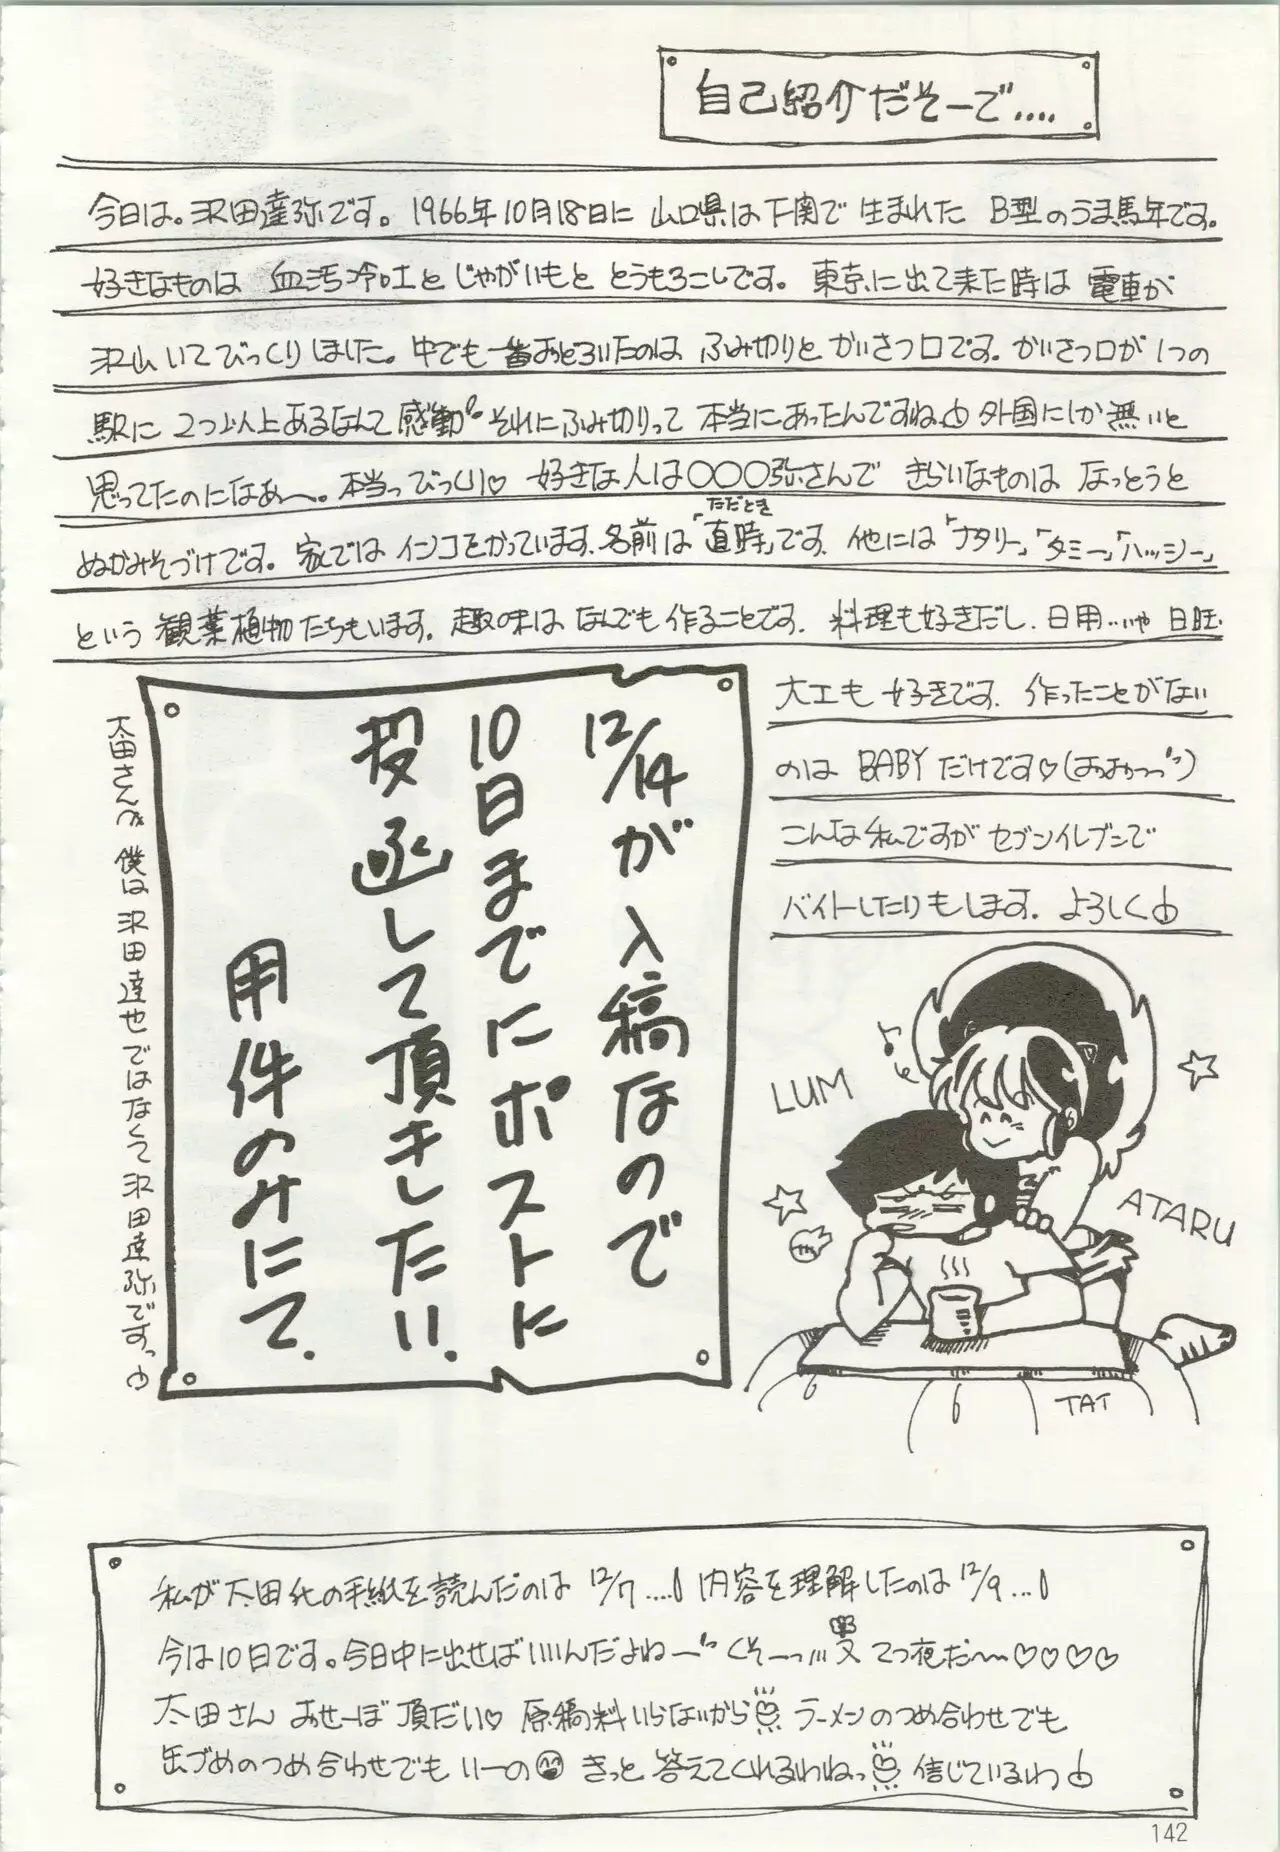 自己紹介だそーで....
今日は。沢田達弥です。1966年10月18日に 山口県は下関で 生まれた B型のうま馬年です。
好きなものは 血汚冷吐と じゃがいもと とうもろこしです。東京に出て来た時は 電車が
沢山いてびっくりしました。中でも一番おどろいたのは ふみ切りと かいさつ口です。かいさつ口が1つの
駅に 2つ以上あるなんて 感動〃 それにふみ切りって 本当にあったんですね 外国にしか 無いと
思ってたのになぁ〜。本当っびっくり♡ 好きな人は○○○弥さんで きらいなものは なっとうと
ぬかみそづけです。家では インコをかっています。名前は「直時」です。他には「ナタリー」「タミー」「ハッシー」
ただとき
という 観葉植物たちもいます。趣味は なんでも 作ることです。料理も好きだし、日用…いや 日旺
大工も 好きです。作ったことがない
のは BABYだけです♡
こんな私ですが セブンイレブンで
バイトしたりもします。よろしく
12/14が入稿なので
10日までにポストに
投函して頂きしたい.
用件のみにて.
太田さんへ 僕は 沢田達也ではなくて 沢田達弥ですっ
LUM
ATARU
TAT
私が太田氏の手紙を読んだのは 12/7....! 内容を理解したのは 12/9...!
今は10日です。今日中に出せばいいんだよね〜〃 くそーっ!!! 又 てつ夜だ〜〜♡♡♡♡
太田さん おせーぼ 頂だい♡ 原稿料いらないから ラーメンのつめ合わせでも
缶づめのつめ合わせでも いーの きっと 答えてくれるわねっ 信じているわ
142